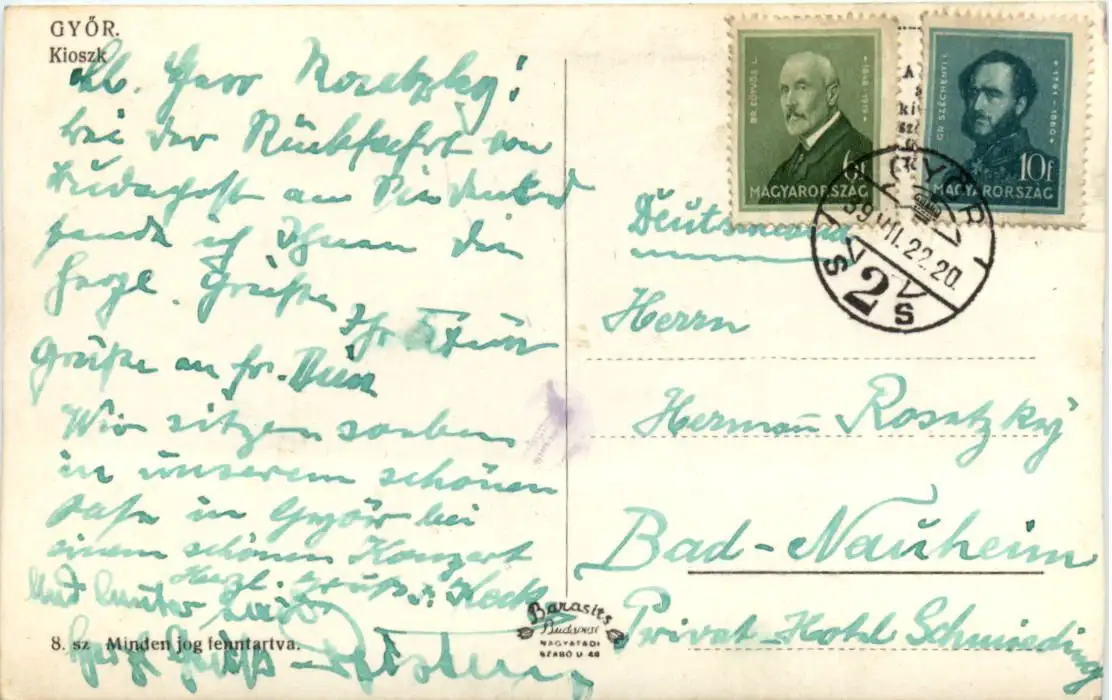 GYŐR.
Kioszk
Lb. Herr Rosetzky!
bei der Rückfahrt von
Budapest am
sende ich Ihnen die
herzl. Grüße
Ihr
Grüße an Fr.
Wir sitzen soeben
in unserem schönen
Kafe in Győr bei
einem schönen Konzert
Herzl. Grüße
Und
8. sz Minden jog fenntartva.
Herzl. Grüße
BR. EÖTVÖS L.
1848-1919
6f
MAGYARORSZÁG
GR. SZÉCHENYI I.
1791-1860
10f
MAGYARORSZÁG
GYŐR
39 VII. 22. 20
2
S S
Deutschland
Herrn
Herman Rosetzky
Bad-Nauheim
Privat-Hotel
Barasits
Budapest
NAGYATÁDI
SZABÓ U 46